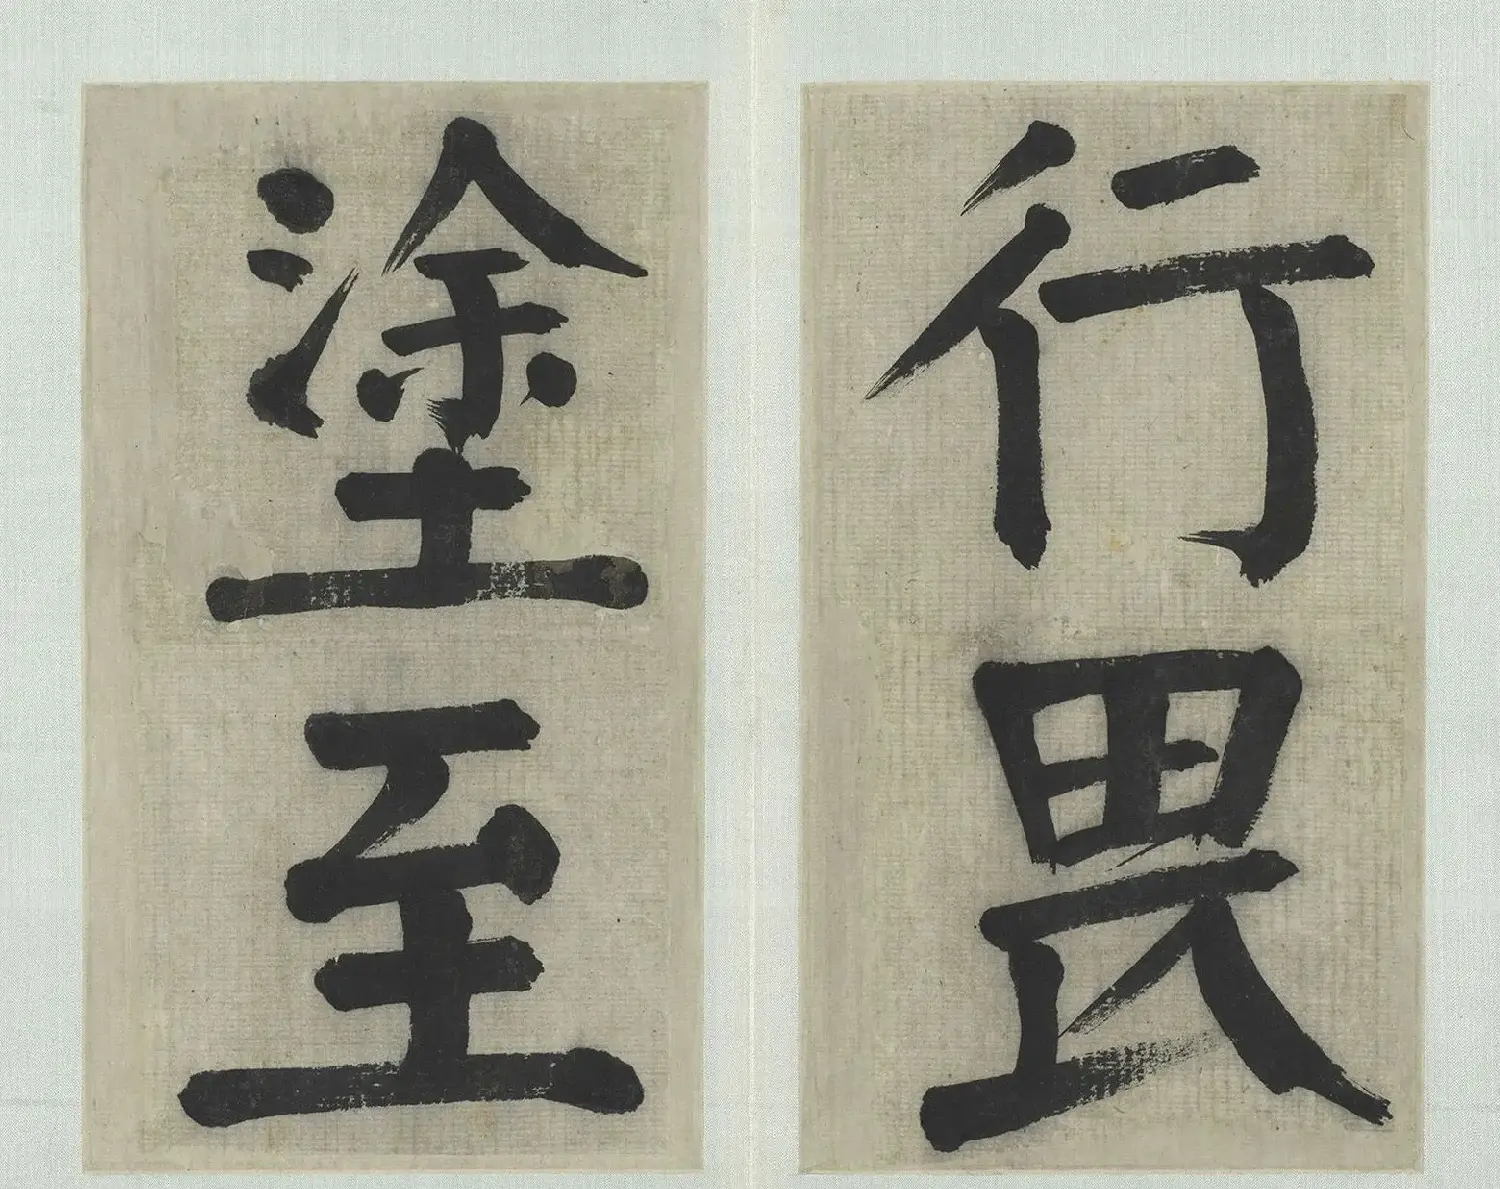 行畏
塗至